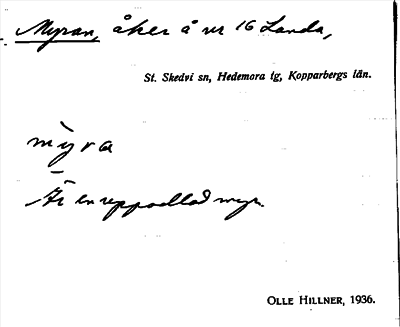 Myran, åker å nr 16 Landa,
St. Skedvi sn, Hedemora tg, Kopparbergs län.
mỳra
Är en uppodlad myr.
OLLE HILLNER, 1936.